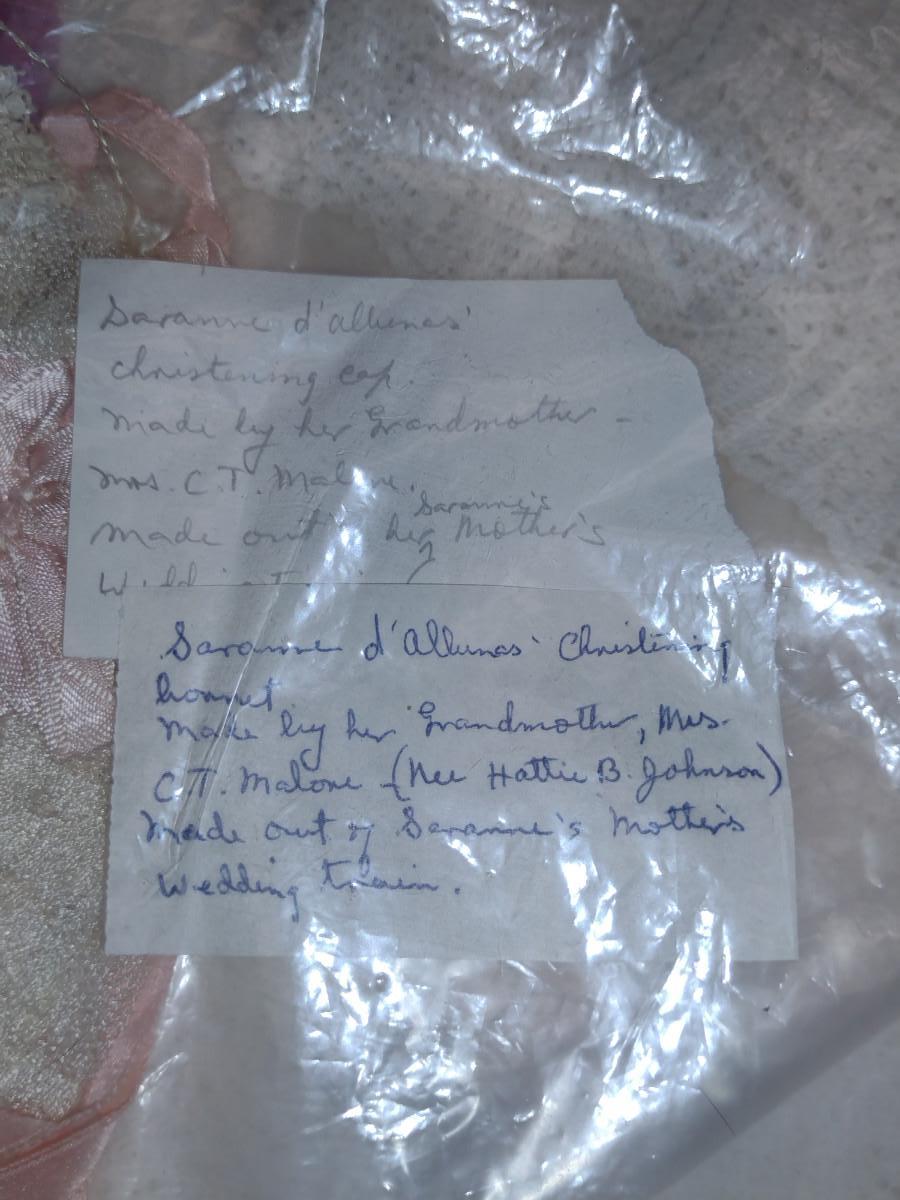 Saranne d'allunas'
christening cap.
Made by her Grandmother -
Mrs. C.T. Malone.
Saranne's
made out her Mother's
Saranne d'Allunas' Christening
bonnet
Made by her Grandmother, Mrs.
C.T. Malone - (Nee Hattie B. Johnson)
Made out of Saranne's Mother's
Wedding train.